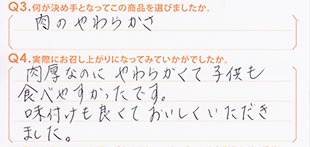 Q3.何が決め手となってこの商品を選びましたか。
肉のやわらかさ
Q4.実際にお召し上がりになってみていかがでしたか。
肉厚なのに やわらかくて 子供も
食べやすかったです。
味付けも良くて おいしくいただき
ました。